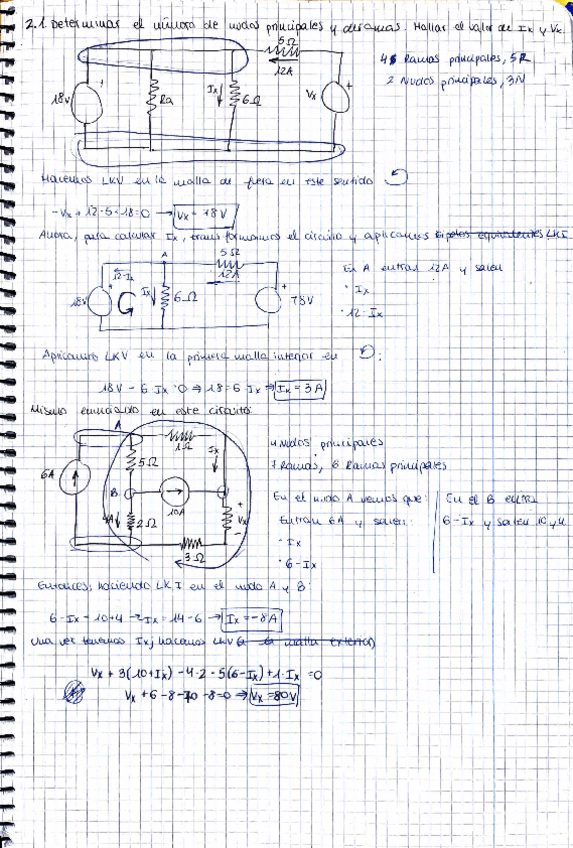 2.1. Determinar el número de nudos principales y de ramas. Hallar el valor de Ix y Vx.
5Ω
12A
18V
Ra
Ix
6Ω
Vx
Ramos principales, 5R
2 Nudos principales, 3N
Hacemos LKV en la malla de fuera en este sentido
-Vx + 12·5 + 18 = 0 → Vx = 78V
Ahora, para calcular Ix, transformamos el circuito y aplicamos LKI
A
5Ω
12A
12-Ix
18V
Ix
6Ω
78V
En A entran 12A y salen
· Ix
· 12-Ix
Aplicamos LKV en la primera malla interior en :
18V - 6·Ix = 0 → 18 = 6·Ix → Ix = 3A
Mismo enunciado en este circuito:
A
1Ω
Ix
6A
5Ω
B
10A
4A
2Ω
Vx
3Ω
4 Nudos principales
7 Ramas, 6 Ramas principales
En el nudo A vemos que:
Entran 6A y salen:
· Ix
· 6-Ix
En el B entra
6-Ix y salen 10 y 4
Entonces, haciendo LKI en el nudo A y B:
6-Ix = 10+4 → -Ix = 14-6 → Ix = -8A
Una vez tenemos Ix, hacemos LKV (malla exterior)
Vx + 3(10+Ix) - 4·2 - 5(6-Ix) + 1·Ix = 0
Vx + 6 - 8 - 70 - 8 = 0 → Vx = 80V